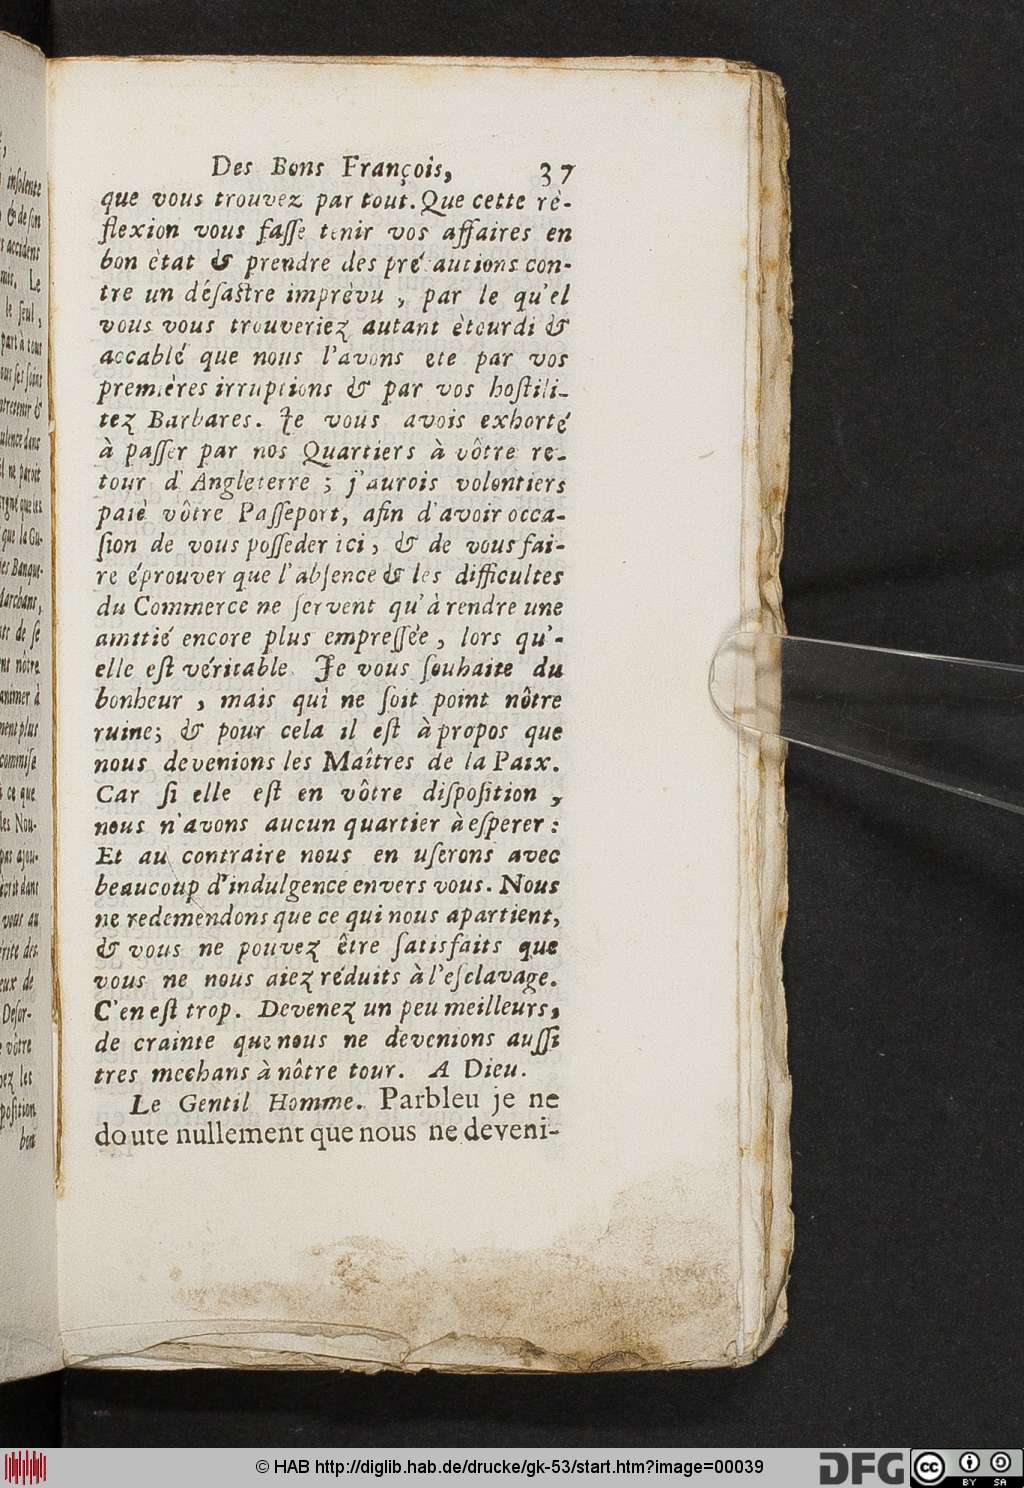 Des Bons François, 37
que vous trouvez par tout. Que cette rè-
flexion vous fasse tenir vos affaires en
bon ètat & prendre des pré autions con-
tre un désastre imprèvu, par le qu'el
vous vous trouveriez autant ètourdi &
accablé que nous l'avons ete par vos
premiéres irruptions & par vos hostili-
tez Barbares. Je vous avois exhorté
à passer par nos Quartiers à vôtre re-
tour d'Angleterre ; j'aurois volontiers
paiè vôtre Passeport, afin d'avoir occa-
sion de vous posseder ici, & de vous fai-
re éprouver que l'absence & les difficultes
du Commerce ne servent qu'à rendre une
amitié encore plus empressée, lors qu'-
elle est véritable. Je vous souhaite du
bonheur, mais qui ne soit point nôtre
ruine; & pour cela il est à propos que
nous devenions les Maîtres de la Paix.
Car si elle est en vôtre disposition,
nous n'avons aucun quartier à esperer :
Et au contraire nous en userons avec
beaucoup d'indulgence envers vous. Nous
ne redemendons que ce qui nous apartient,
& vous ne pouvez être satisfaits que
vous ne nous aiez réduits à l'esclavage.
C'en est trop. Devenez un peu meilleurs,
de crainte que nous ne devenions aussi
tres mechans à nôtre tour. A Dieu.
Le Gentil Homme. Parbleu je ne
doute nullement que nous ne deveni-
insolente
& de son
accidens
Le
le seul,
part à tous
ntretenir &
il ne paroit
que la Gu-
es Banque-
Marchans,
de se
nôtre
animer à
ment plus
commise
à ce que
les Nou-
pas ajou-
écrit dans
vous au
érite des
eux de
Desor-
vôtre
nez les
position
bon
© HAB http://diglib.hab.de/drucke/gk-53/start.htm?image=00039
DFG
cc BY SA